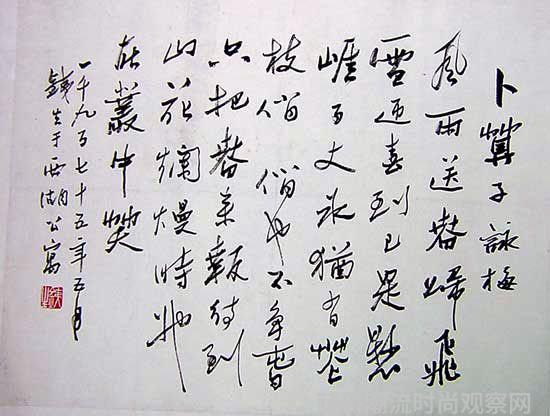 卜算子詠梅
風雨送春歸飛
雪迎春到已是懸
崖百丈冰猶有花
枝俏 俏也不爭春
只把春來報待到
山花爛熳時她
在叢中笑
一千九百七十五年五月
錢于西湖公寓
流时尚观察网